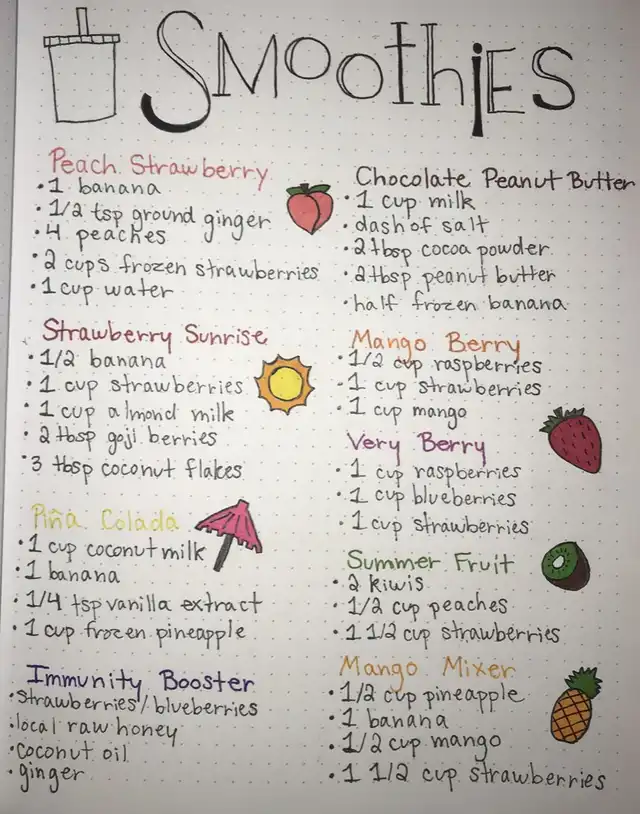 Smoothies
Peach Strawberry
• 1 banana
• 1/2 tsp ground ginger
• 4 peaches
• 2 cups frozen strawberries
• 1 cup water
Strawberry Sunrise
• 1/2 banana
• 1 cup strawberries
• 1 cup almond milk
• 2 tbsp goji berries
• 3 tbsp coconut flakes
Piña Colada
• 1 cup coconut milk
• 1 banana
• 1/4 tsp vanilla extract
• 1 cup frozen pineapple
Immunity Booster
• strawberries/blueberries
• local raw honey
• coconut oil
• ginger
Chocolate Peanut Butter
• 1 cup milk
• dash of salt
• 2 tbsp cocoa powder
• 2 tbsp peanut butter
• half frozen banana
Mango Berry
• 1/2 cup raspberries
• 1 cup strawberries
• 1 cup mango
Very Berry
• 1 cup raspberries
• 1 cup blueberries
• 1 cup strawberries
Summer Fruit
• 2 kiwis
• 1/2 cup peaches
• 1 1/2 cup strawberries
Mango Mixer
• 1/2 cup pineapple
• 1 banana
• 1/2 cup mango
• 1 1/2 cup strawberries